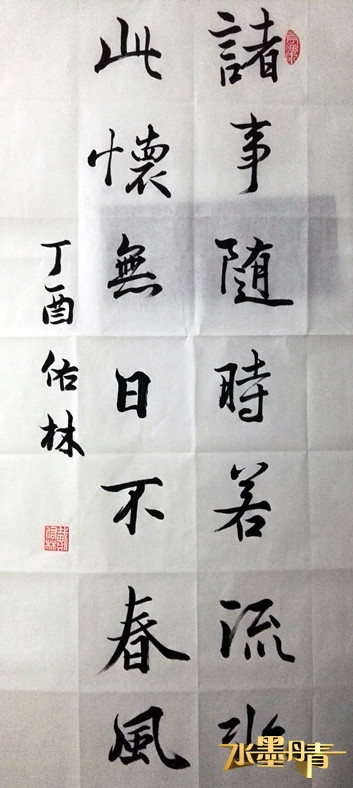 諸事随時若流水
此懷無日不春風
丁酉佑林
水墨丹青